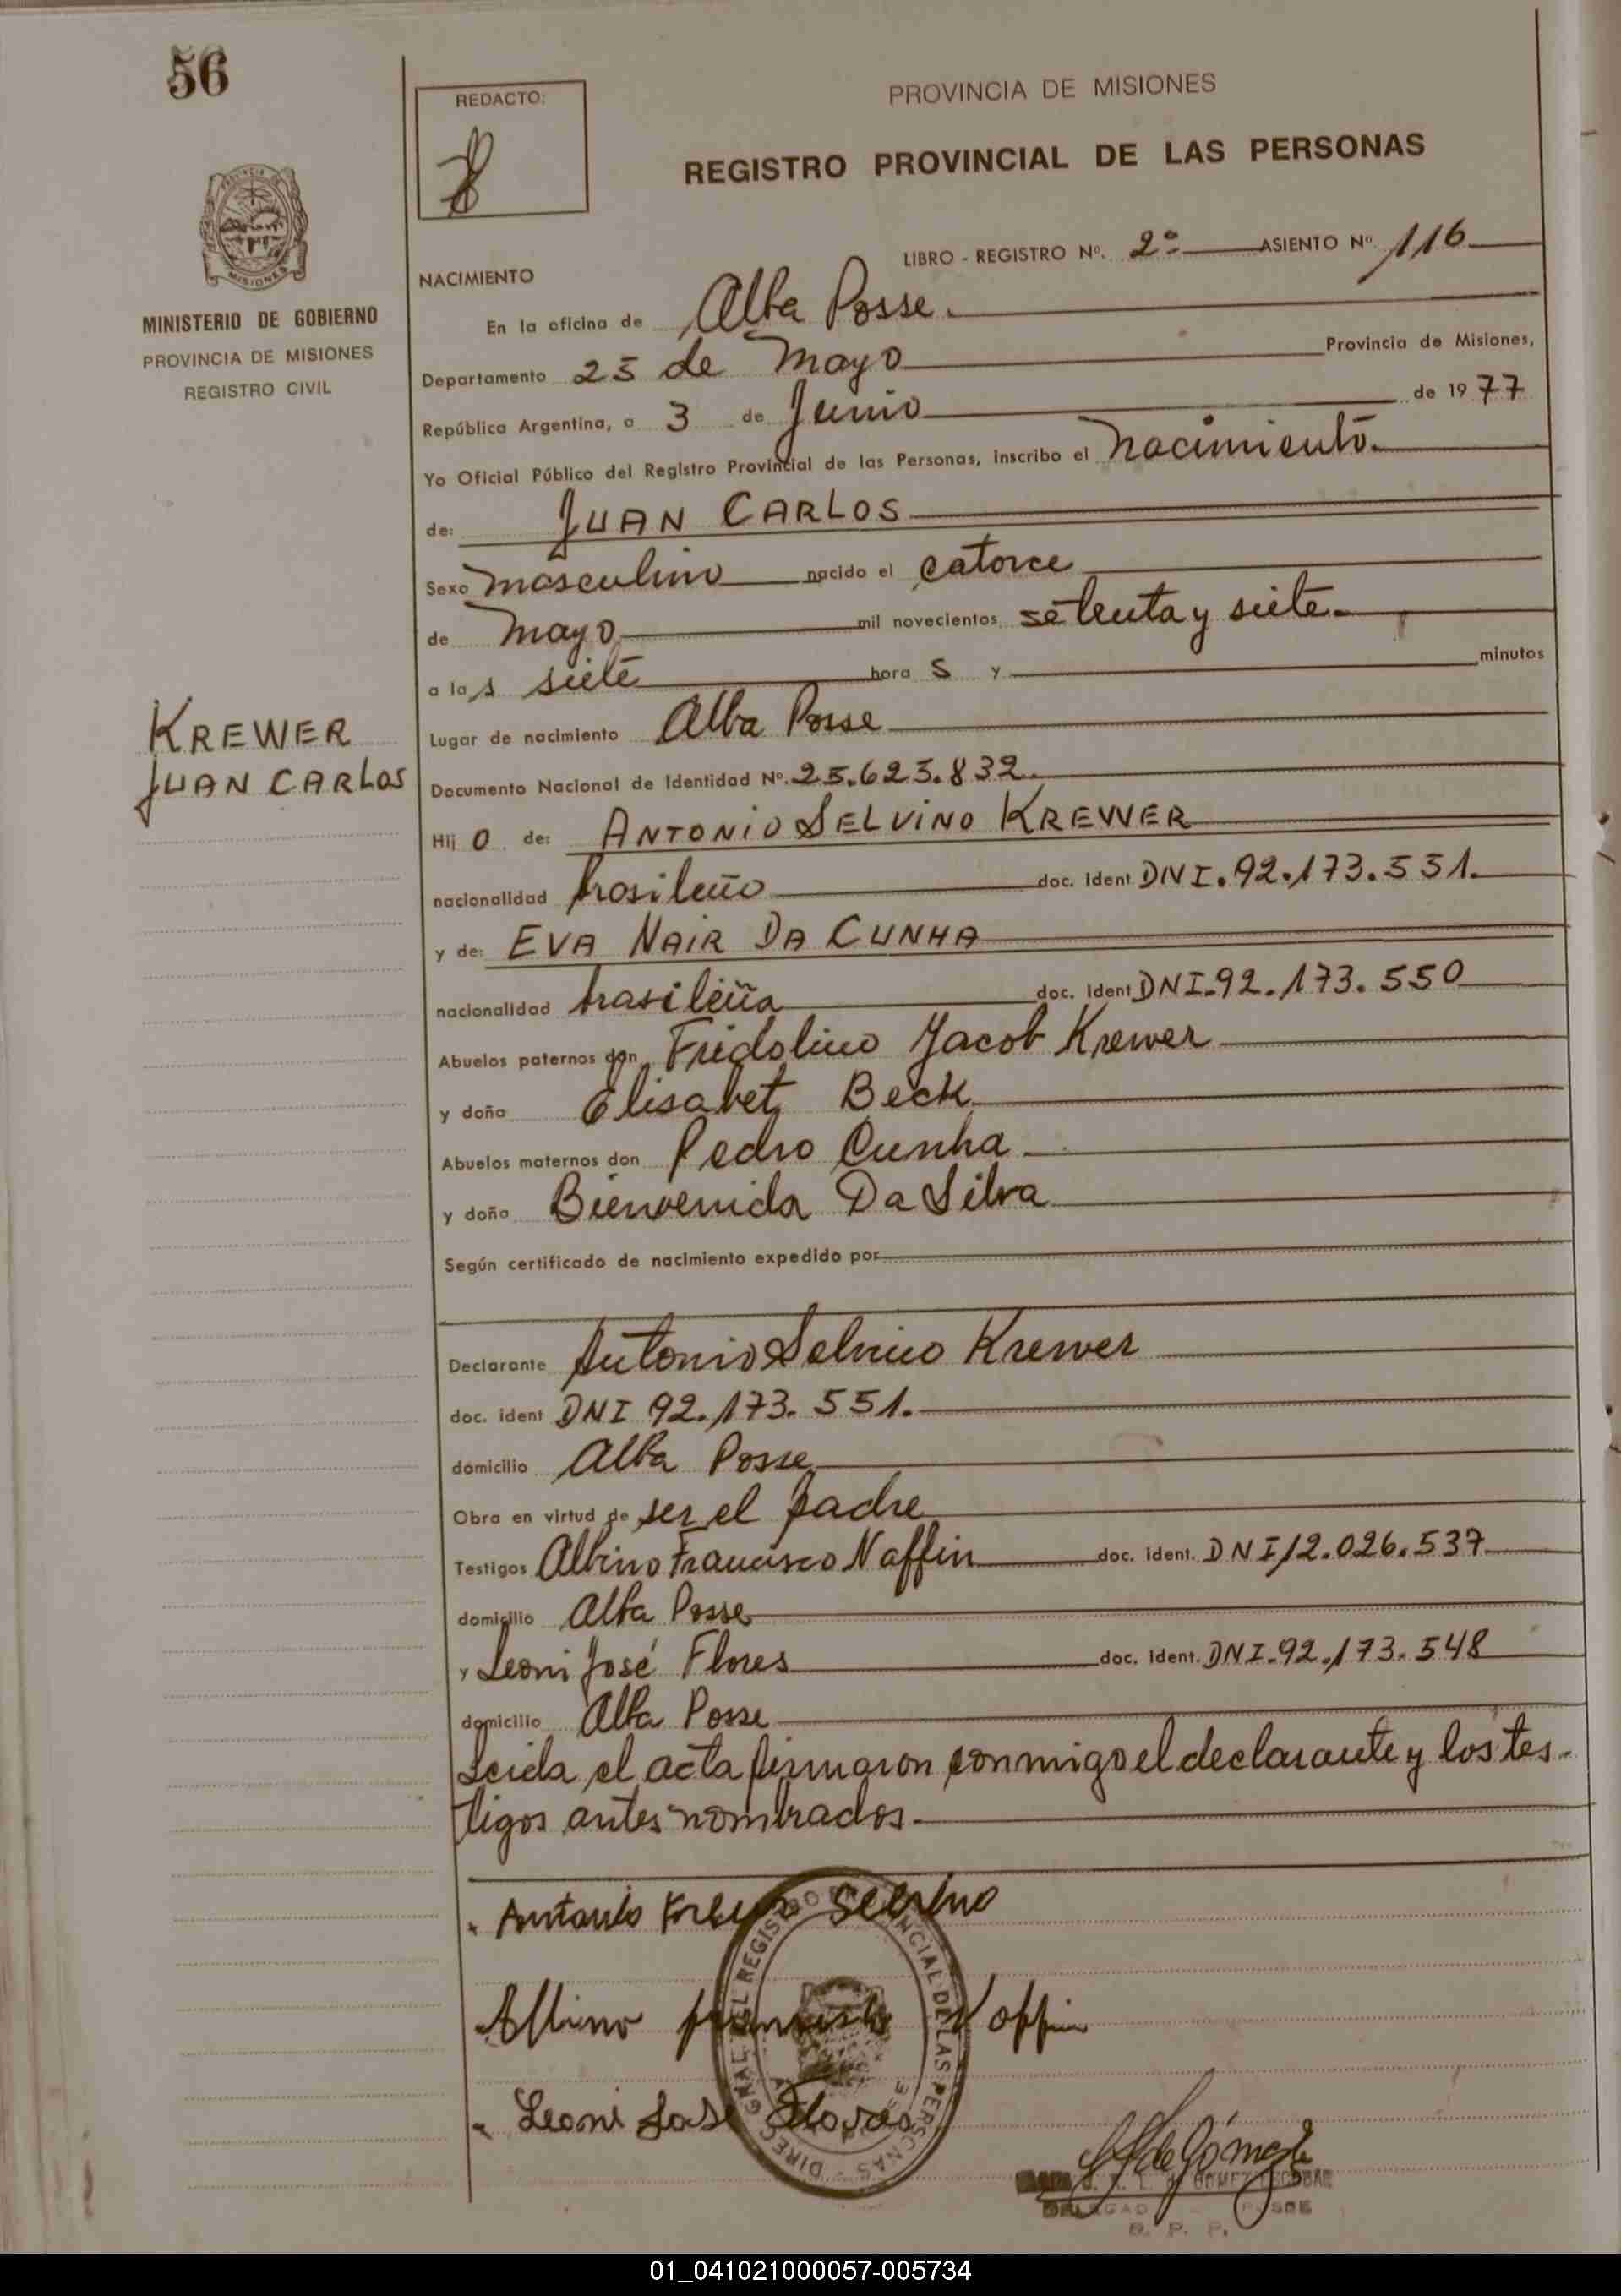 56
REDACTO:
PROVINCIA DE MISIONES
REGISTRO PROVINCIAL DE LAS PERSONAS
LIBRO - REGISTRO Nº. 2º ASIENTO Nº. 116
NACIMIENTO
MINISTERIO DE GOBIERNO
PROVINCIA DE MISIONES
REGISTRO CIVIL
En la oficina de Alba Posse.
Departamento 25 de Mayo Provincia de Misiones,
República Argentina, a 3 de Junio de 1977
Yo Oficial Público del Registro Provincial de las Personas, inscribo el nacimiento.
de: JUAN CARLOS
Sexo masculino nacido el catorce
de mayo mil novecientos setenta y siete.
a las siete hora s y minutos
KREWER
JUAN CARLOS
Lugar de nacimiento Alba Posse
Documento Nacional de Identidad Nº. 25.623.832.
Hij o de: ANTONIO SELVINO KREWER
nacionalidad brasileño doc. ident DNI. 92.173.551.
y de: EVA NAIR DA CUNHA
nacionalidad brasileña doc. ident DNI. 92.173.550
Abuelos paternos don Fridolino Jacob Krewer
y doña Elisabet Beck
Abuelos maternos don Pedro Cunha
y doña Bienvenida Da Silva
Según certificado de nacimiento expedido por
Declarante Antonio Selvino Krewer
doc. ident DNI 92.173.551.
domicilio Alba Posse
Obra en virtud de ser el padre
Testigos Albino Francisco Naffin doc. ident. DNI 12.026.537
domicilio Alba Posse
y Leoni José Flores doc. ident. DNI. 92.173.548
domicilio Alba Posse
Leida el acta firmaron conmigo el declarante y los tes-
tigos antes nombrados.
Antonio Selvino
Albino Naffin
Leoni José Flores
DIREC. GRAL. DEL REGISTRO PROVINCIAL DE LAS PERSONAS
GOMEZ ESCOBAR
R. P. P.
01_041021000057-005734